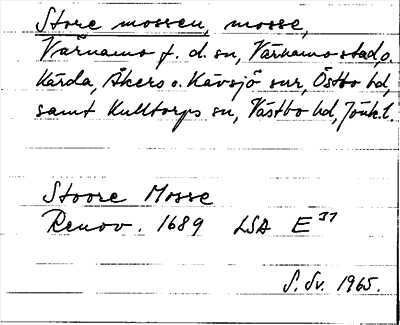 Store mossen, mosse,
Värnamo f. d. sn, Värnamo stad,
Kärda, Åkers o. Kävsjö snr, Östbo hd,
samt Kulltorps sn, Västbo hd, Jönk. l.
Stoore Mosse
Renov. 1689 LSA E 37
S. Sv. 1965.